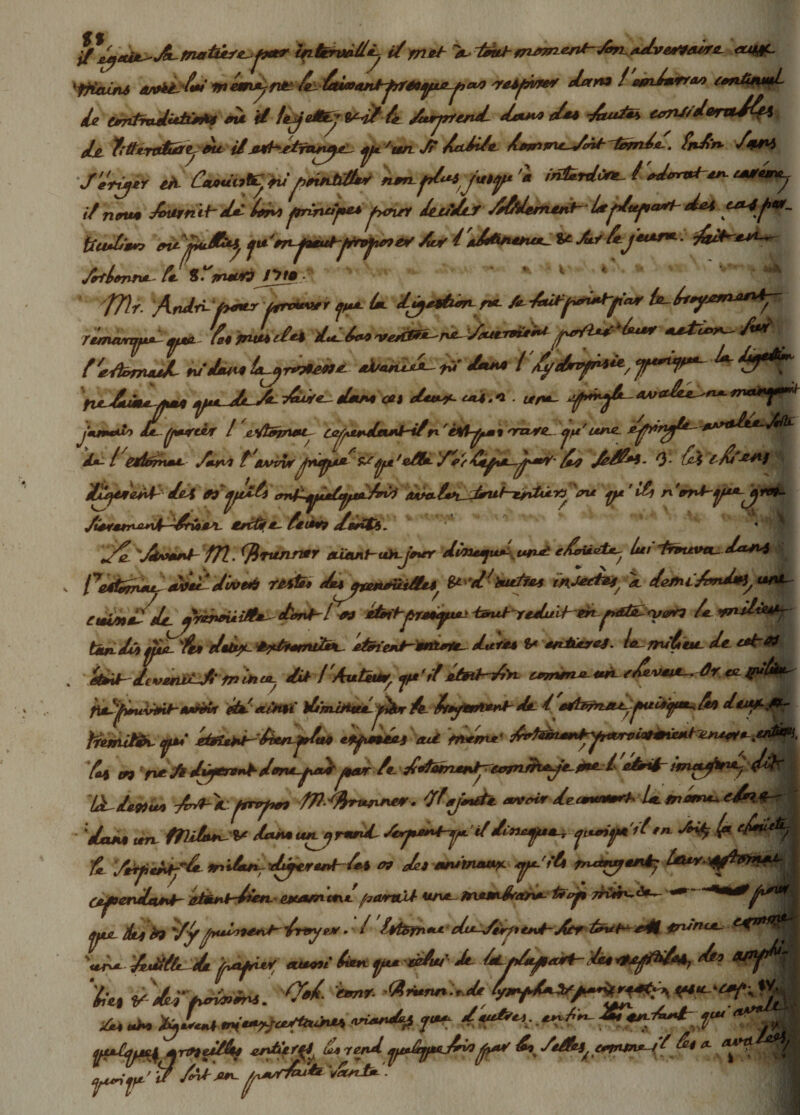 il égaie la matière par intervalle, il met à tout moment son adversaire aux
mains avec lui même, ne le laissant presque pas respirer dans l'embarras continuel
de contradictions où il le jette, & il le surprend dans des fautes considerables
de litterature, où il est étrange qu'un si habile homme soit tombé. Enfin sans
s'ériger en Casuiste, ni pointiller non plus jusqu'à interdire l'odorat en carême,
il nous fournit de bons principes pour decider solidement la plupart des cas par_
ticuliers ou qu'on peut proposer sur l'abstinence & sur le jeune. fait en
sorbonne le 8. mars 1710.
Mr. Andri pour prouver que la digestion ne se fait point par le broyement
remarque que les muscles du bas ventre ne sauroient porter leur action sur
l'estomach ni dans la grossesse avancée ni dans l'hydropisie, quoique la digestion
ne laisse pas que de se faire dans ces deux cas. une épingle avalée ne manqueroit
jamais de percer l'estomac cependant il n'est pas rare qu'une épingle avalée
de l'estomac sans l'avoir piqué & qu'elle s'échape par les selles. 3. les chiens
digerent des os qu'ils ont quelquefois avalés tout entiers ou qu'ils n'ont que gros_
sierement brisés entre leurs dents.
Le savant M. Brunner aiant un jour disséqué une choüete, lui trouva dans
l'estomac, avec divers restes des grenoüilles & d'autres insectes, à demi fondus, une
cuisse de grenoüille dont l'os étoit presque tout reduit en pâte vers le milieu
tandis que les deux extremités étoient encore dures & entieres. le milieu de cet os
étoit devenu si mince, dit l'Auteur, qu'il étoit fin comme un cheveu. Or ce milieu
ne pouvoit avoir été ainsi diminué par le broyement de l'estomac, puisque les deux ex_
tremités qui étoient bien plus exposées au même frotement paroissoient encore entieres,
les os ne se digerent donc pas par le frotement comme je me l'étois imaginé, dit
là-dessus fort à propos M. Brunner. Il ajoute avoir decouvert la même chose
dans un Milan & dans un grand serpent qu'il disseque, quoiqu'il en soit, la choüete
le serpent, le milan, digerent les os des animaux qu'ils mangent, leur estomac
cependant étant bien examiné paroît une membrane trop mince pour
que des os s'y puissent broyer. l'estomac du serpent sur tout est mince comme
une feuille de papier aussi bien que celui de la plupart des reptiles, des amphi_
bies & des poissons. Joh. Conr. Brunn. de lympha & pancreat. cap. IV.
les uns digerent mieux certaines viandes que d'autres. enfin un enfant qui avale
quelques groseilles entieres, les rend quelquefois par les selles, comme il les a avalées,
quoiqu'il soit en parfaite santé.